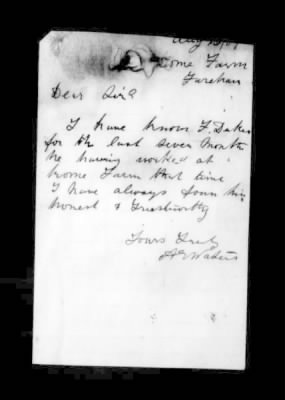 Home Farm
Fareham
Dear Sir
I have known F. Dakes
for the last seven month
he having worked at
home Farm that time
I have always found him
honest & Trustworthy
Yours Truly
Waters